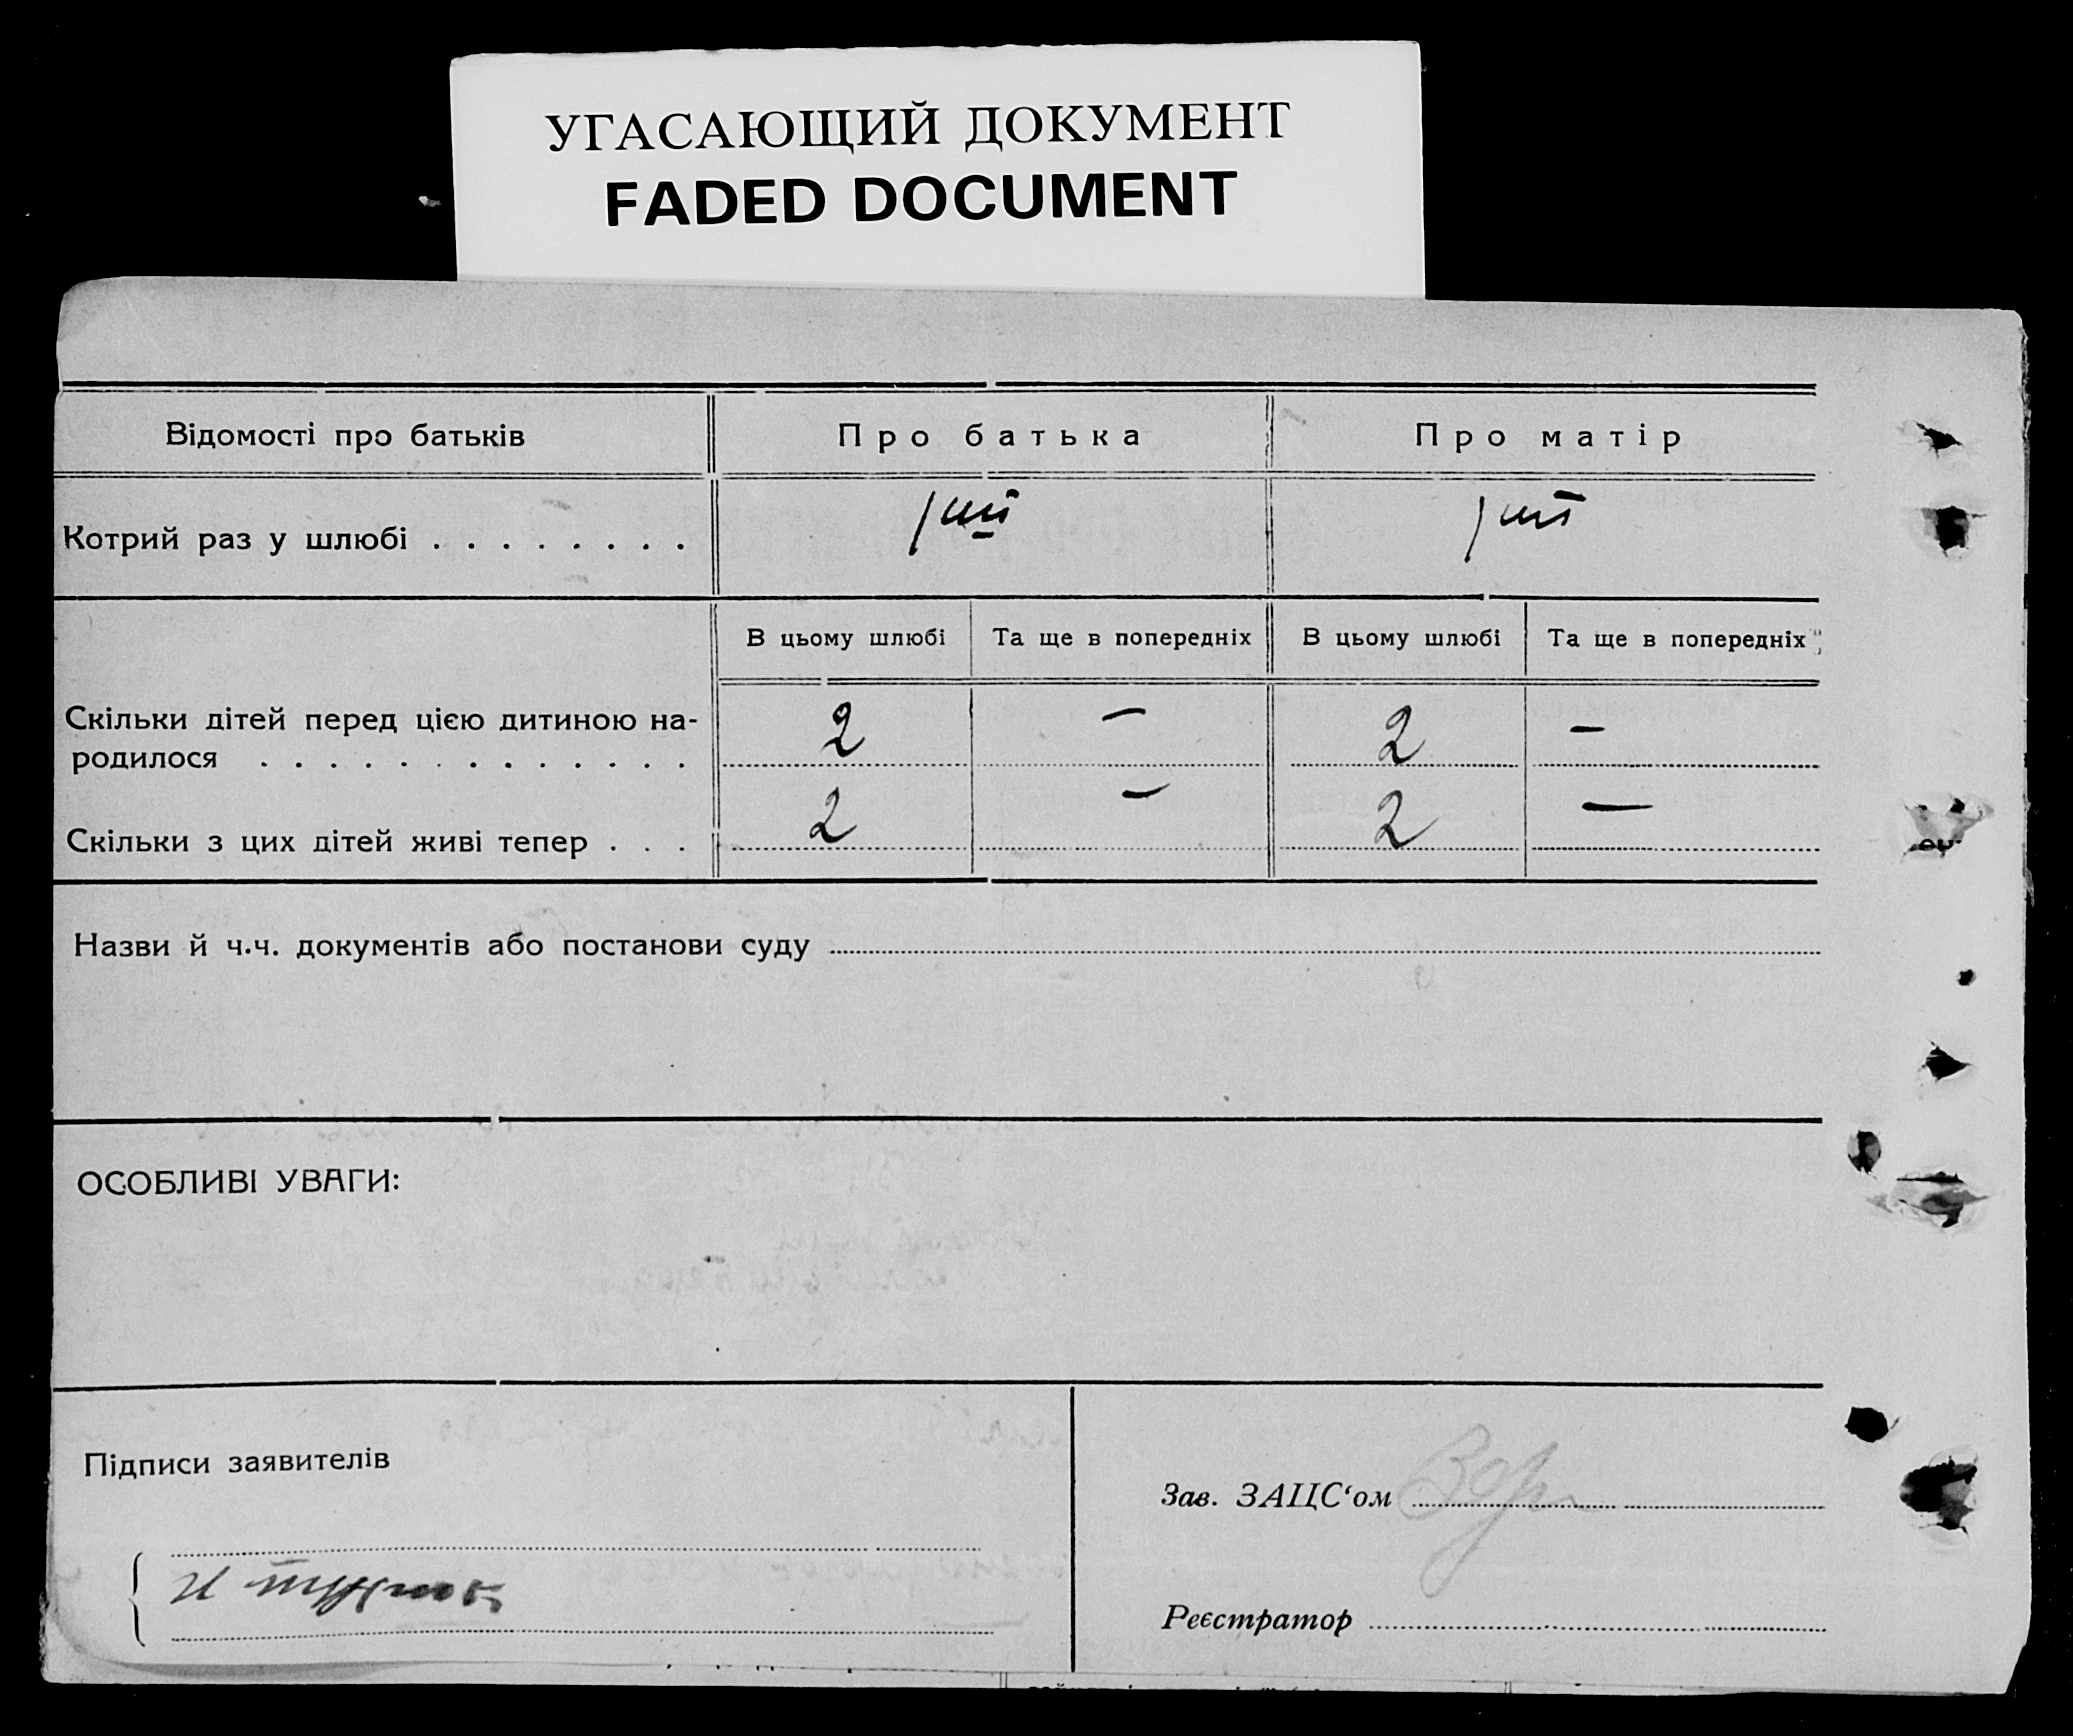 УГАСАЮЩИЙ ДОКУМЕНТ
FADED DOCUMENT
Відомості про батьків
Про батька
Про матір
Котрий раз у шлюбі . . . . . . . .
1ий
1ий
В цьому шлюбі
Та ще в попередніх
В цьому шлюбі
Та ще в попередніх
Скільки дітей перед цією дитиною на-
родилося . . . . . . . . . . . . .
2
—
2
—
Скільки з цих дітей живі тепер . . .
2
—
2
—
Назви й ч.ч. документів або постанови суду
ОСОБЛИВІ УВАГИ:
Підписи заявителів
Зав. ЗАЦС‘ом
Реєстратор